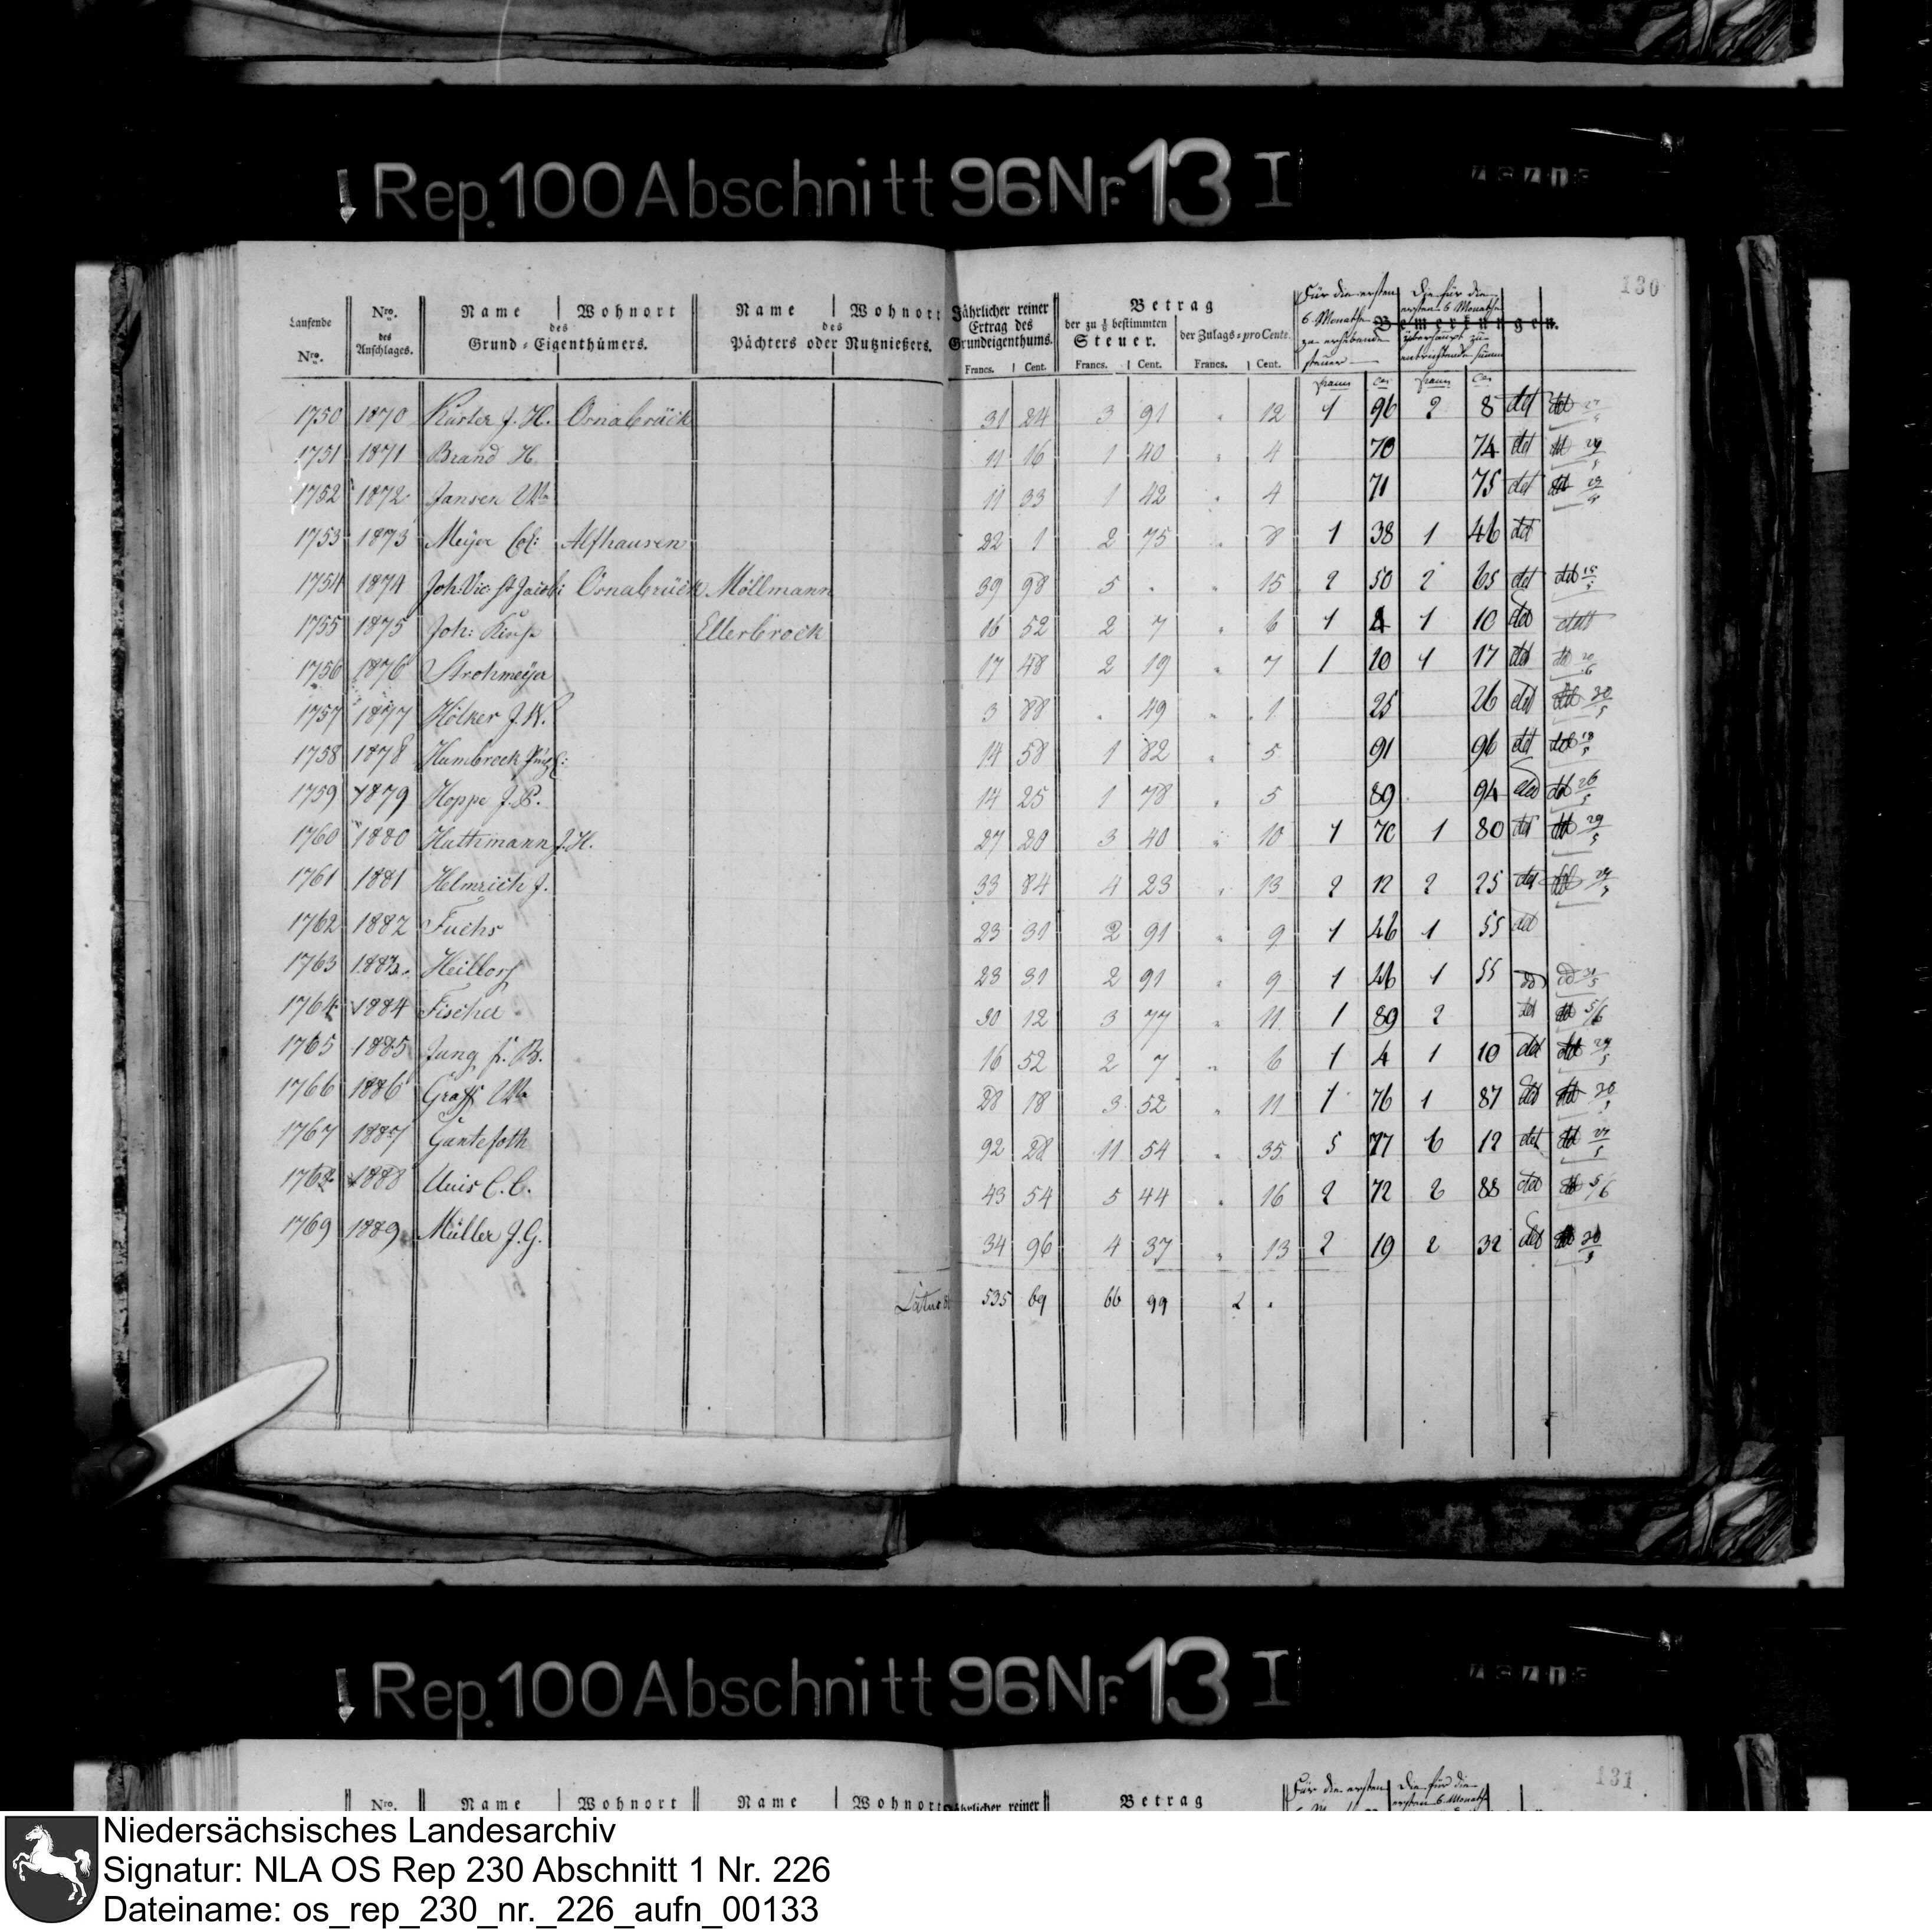 Rep. 100 Abschnitt 96 Nr. 13 I
130
Laufende Nro. | Nro. des Anschlages. | Name | Wohnort des Grund-Eigenthümers. | Name | Wohnort des Pächters oder Nutznießers. | Jährlicher reiner Ertrag des Grundeigenthums. Francs. Cent. | Betrag der zu 1/8 bestimmten Steuer. Francs. Cent. | der Zulags-pro Cente. Francs. Cent. | Für die ersten 6 Monathe zu erhebende Steuer | Die für die ersten 6 Monathe überhaupt zu entrichtende Summe | Bemerkungen.
1750 1870 Küster J. H. Osnabrück 31 24 3 91 " 12 1 96 2 8 det
1751 1871 Brand H. 11 16 1 40 " 4 70 74 det
1752 1872 Jansen Wb 11 33 1 42 " 4 71 75 det
1753 1873 Meyer Col: Alfhausen 22 1 2 75 " 8 1 38 1 46 det
1754 1874 Joh: Vic: St Jacobi Osnabrück Möllmann 39 98 5 " " 15 2 50 2 65 det det 15/5
1755 1875 Joh: Ellerbrock 16 52 2 7 " 6 1 4 1 10 det
1756 1876 Strohmeyer 17 48 2 19 " 7 1 10 1 17 det
1757 1877 Hölker J. W. 3 88 " 49 " 1 25 26 det det 30/5
1758 1878 Humbrock 14 58 1 82 " 5 91 96 det det 18/5
1759 1879 Hoppe J. 14 25 1 78 " 5 89 94 det det 26/5
1760 1880 Huthmann J. H. 27 20 3 40 " 10 1 70 1 80 det det 29/5
1761 1881 Helmrich J. 33 84 4 23 " 13 2 12 2 25 det
1762 1882 Fuchs 23 31 2 91 " 9 1 46 1 55 det
1763 1883 23 31 2 91 " 9 1 46 1 55 det
1764 1884 Fischer 30 12 3 77 " 11 1 89 2 det det 5/6
1765 1885 Jung 16 52 2 7 " 6 1 4 1 10 det det 29/5
1766 1886 Graff Wb 28 18 3 52 " 11 1 76 1 87 det det
1767 1887 Gantefoth 92 28 11 54 " 35 5 77 6 12 det det
1768 1888 C. C. 43 54 5 44 " 16 2 72 2 88 det det 5/6
1769 1889 Müller J. G. 34 96 4 37 " 13 2 19 2 32 det det
Latus 535 69 66 99 2 "
Rep. 100 Abschnitt 96 Nr. 13 I
131
Nro. Name Wohnort Name Wohnort Jährlicher reiner Betrag Für die ersten Die für die
ersten 6 Monath
Niedersächsisches Landesarchiv
Signatur: NLA OS Rep 230 Abschnitt 1 Nr. 226
Dateiname: os_rep_230_nr._226_aufn_00133